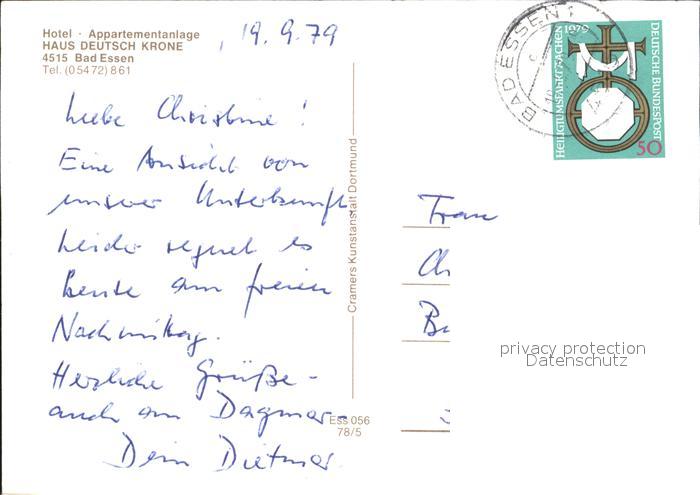 Hotel · Appartementanlage
HAUS DEUTSCH KRONE
4515 Bad Essen
Tel. (05472) 861
, 19.9.79
Liebe Christine!
Eine Ansicht von
unserer Unterkunft
Leider regnet es
heute am freien
Nachmittag.
Herzliche Grüße -
auch an Dagmar -
Dein Dietmar.
Cramers Kunstanstalt Dortmund
Ess 056
78/5
BAD ESSEN 1
HEILIGTUMSFAHRT AACHEN 1979
DEUTSCHE BUNDESPOST
50
Frau
Ch
privacy protection
Datenschutz